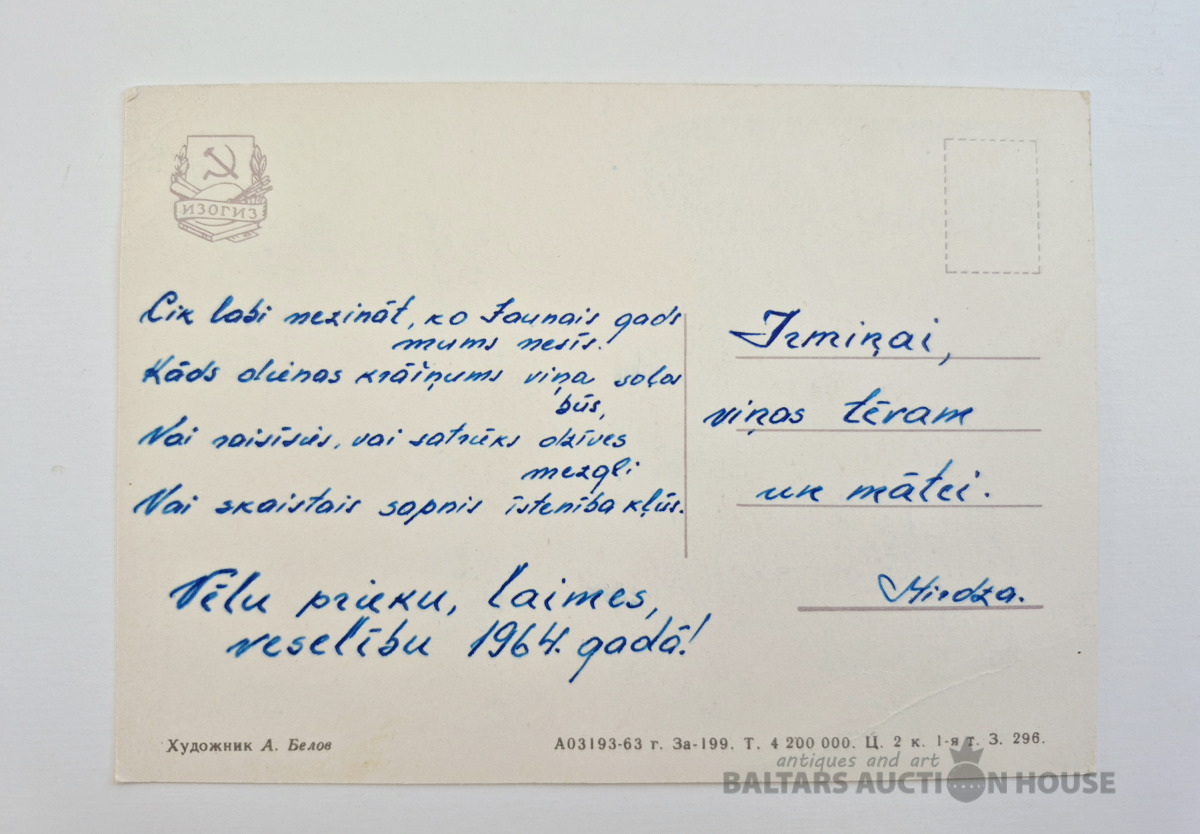 ИЗОГИЗ
Cik labi nezināt, ko Jaunais gads
mums nesīs.
Kāds dienas krāšņums viņa soļos
būs,
Vai raisīsies, vai satrūks dzīves
mezgli
Vai skaistais sapnis īstenība kļūs.
Vēlu prieku, laimes,
veselību 1964. gadā!
Irmiņai,
viņas tēvam
un mātei.
Mirdza.
Художник А. Белов
А03193-63 г. За-199. Т. 4 200 000. Ц. 2 к. 1-я т. З. 296.
antiques and art
BALTARS AUCTION HOUSE